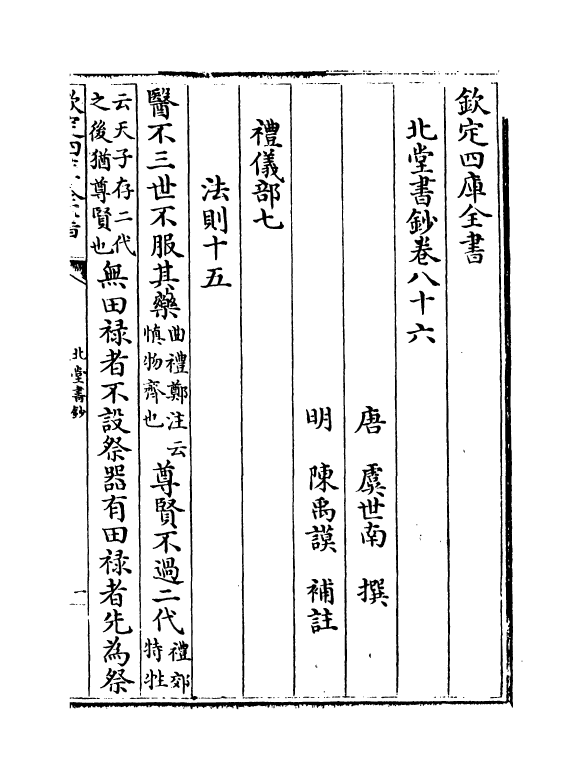 欽定四庫全書
北堂書鈔卷八十六
唐 虞世南 撰
明 陳禹謨 補註
禮儀部七
法則十五
醫不三世不服其藥曲禮鄭注云慎物齊也尊賢不過二代禮郊特牲
云天子存二代之後猶尊賢也無田禄者不設祭器有田禄者先為祭
北堂書鈔